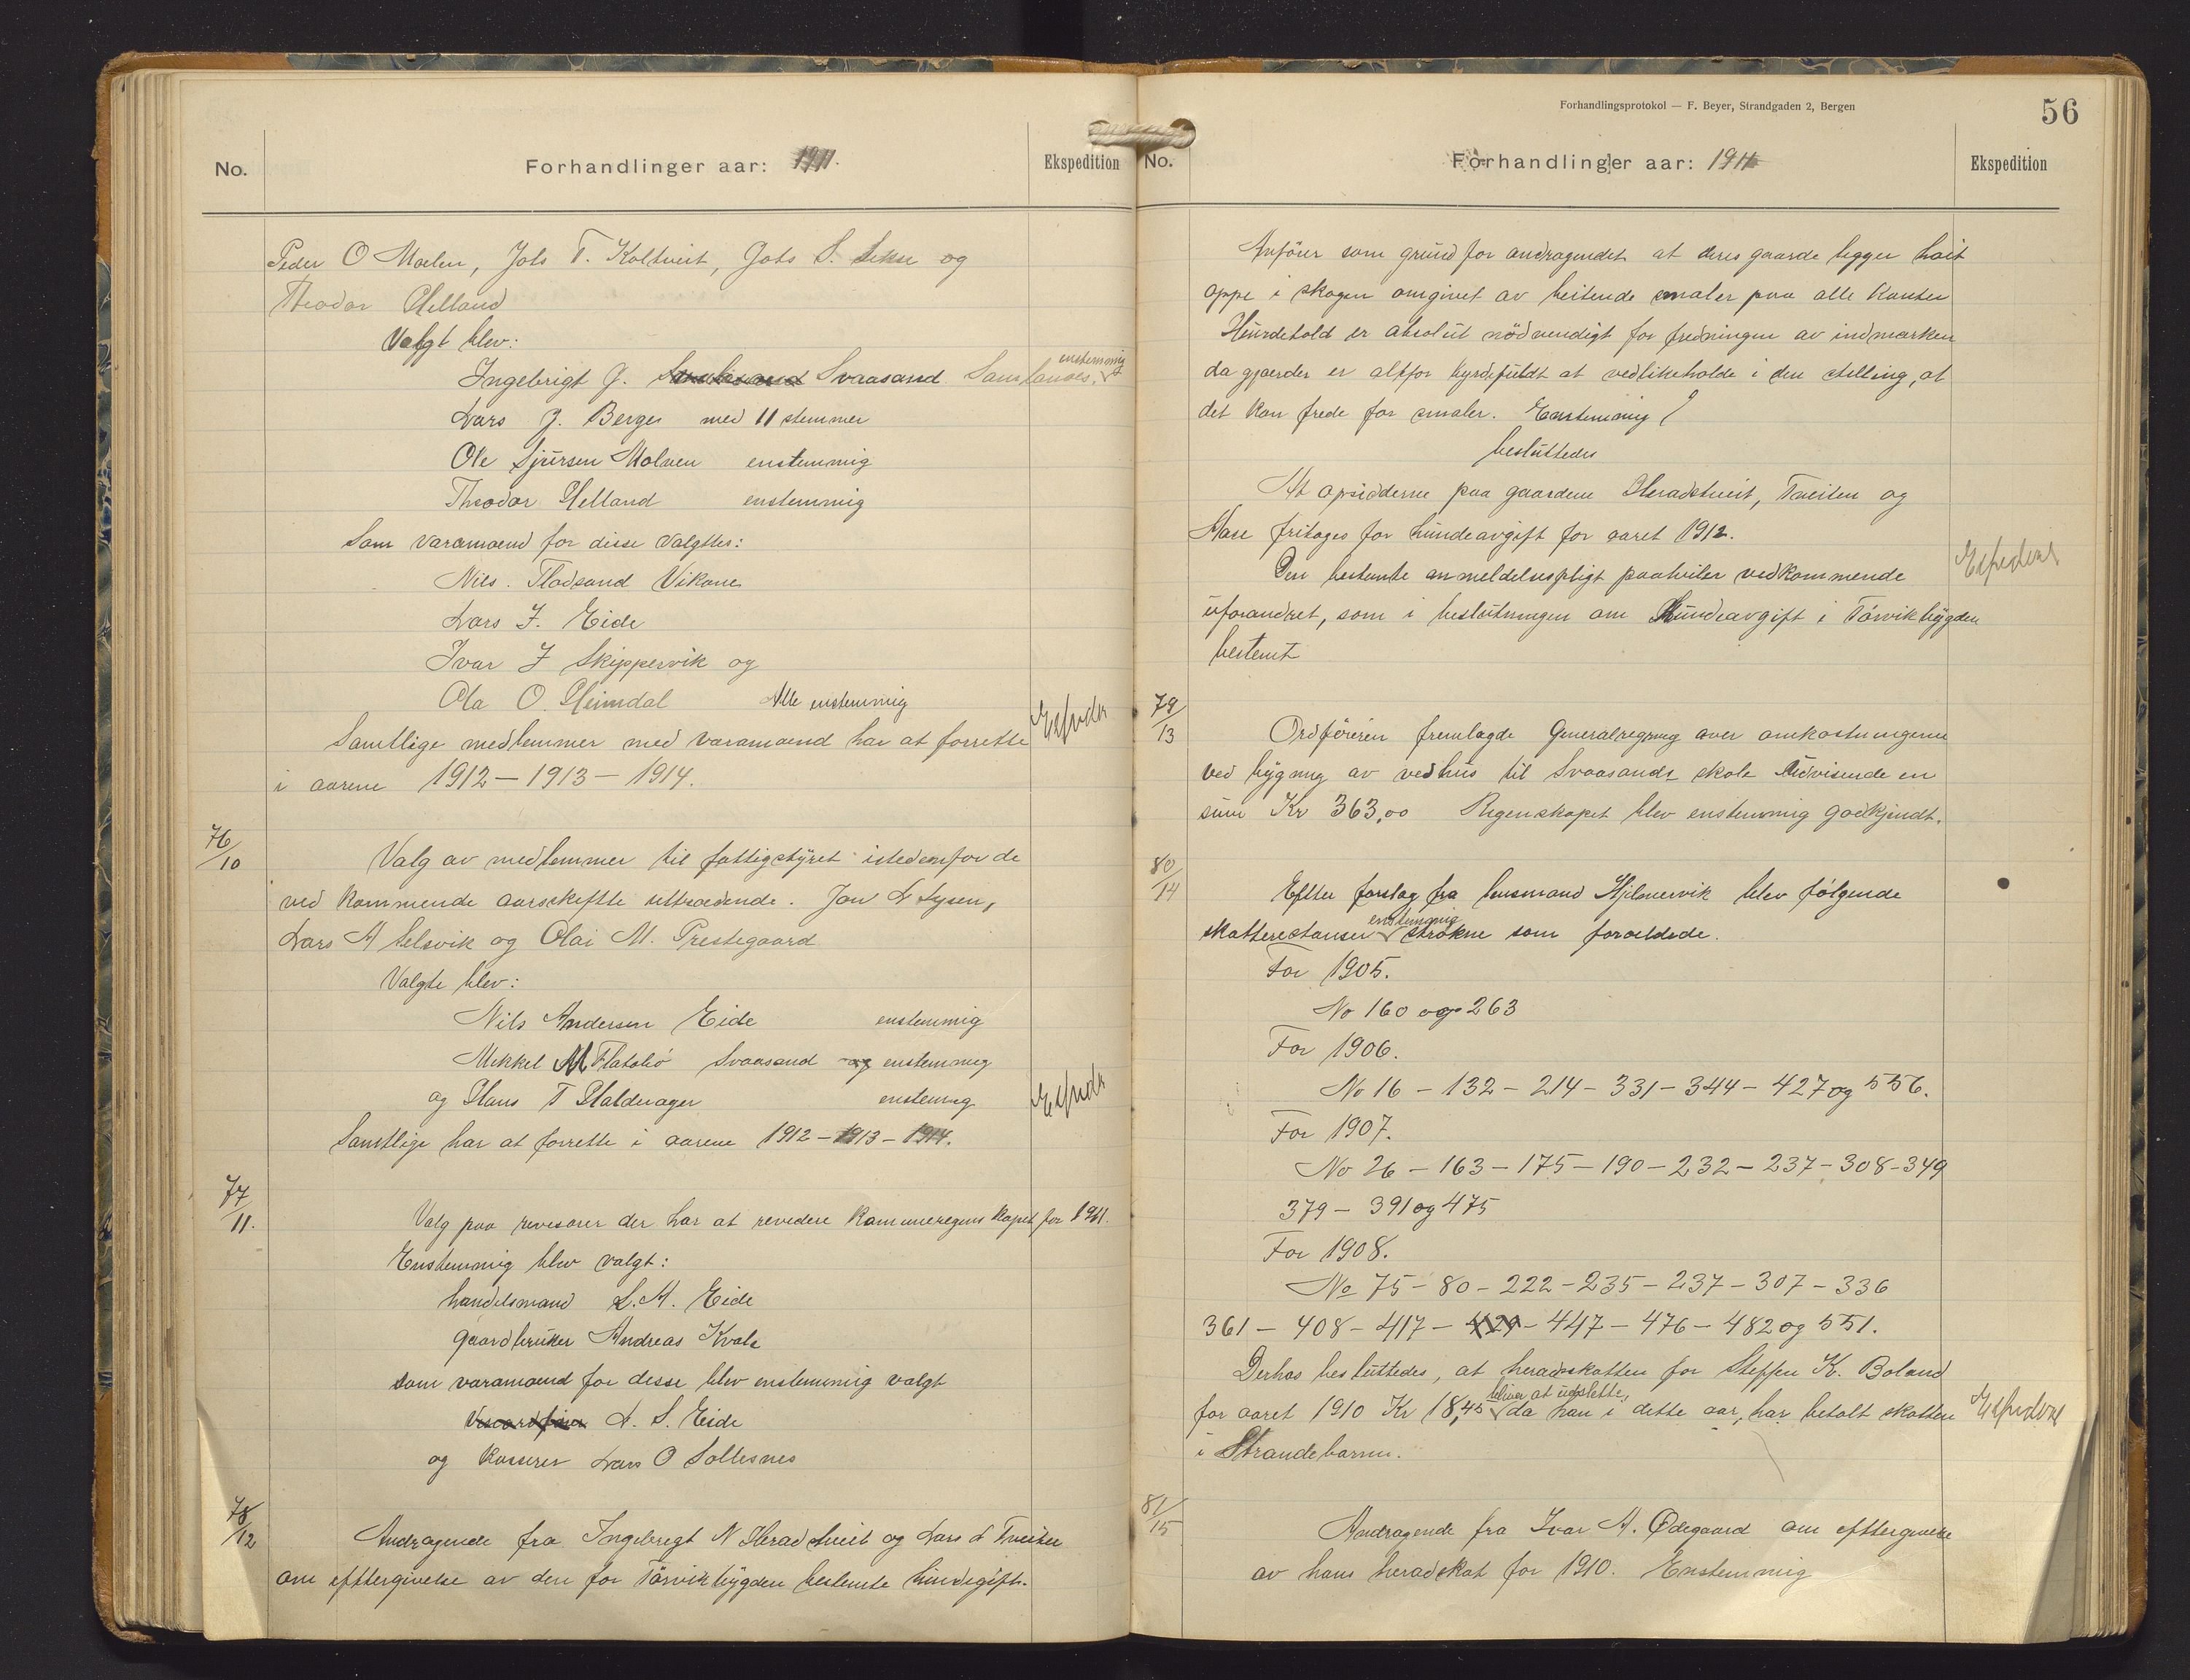 No.
Forhandlinger aar: 1911.
Ekspedition
Peder O Maelen, Jobs T. Koltveit, Jobs S. Sekse og
Theodor Helland
Valgt blev:
Ingebrigt J. Svaasand Samlanges, enstemmig
Lars J. Berge med 11 stemmer
Ole Sjursen Molven enstemmig
Theodor Helland enstemmig
Som varamænd for disse valgtes:
Nils. Flodsand Vikane
Lars J. Eide
Ivar J Skippervik og
Ola O. Heimdal Alle enstemmig
Samtlige medlemmer med varamænd har at forrette
i aarene 1912 — 1913 — 1914.
76/10
Valg av medlemmer til fattigstyret istedenfor de
ved kommende aarsskifte uttrædende. Jon L Lysen,
Lars A Selsvik og Olai M. Prestegaard
Valgte blev:
Nils Andersen Eide enstemmig
Mikkel M Flatabø Svaasand og enstemmig
og Hans T Halderager enstemmig
Samtlige har at forrette i aarene 1912 — 1913 — 1914.
77/11.
Valg paa revisorer der har at revidere Kommuneregnskapet for 1911.
Enstemmig blev valgt:
handelsmand L. A. Eide
gaardbruker Andreas Kvale
som varamænd for desse blev enstemmig valgt
A. S. Eide
og Kasserer Lars O Soltesnes
78/12
Andragende fra Ingebregt N Heradstveit og Lars L Tveiten
om eftergivelse av den for Törvikbygden bestemte hundegift.
Forhandlingsprotokol — F. Beyer, Strandgaden 2, Bergen
56
No.
Forhandlinger aar: 1911
Ekspedition
Anförer som grund for andragendet at deres gaarde ligger höit
oppe i skogen omgivet av beitende smaler paa alle kanter
Hundehold er absolut nödvendigt for fredningen av indmarken
da gjærder er altfor byrdefuldt at vedlikeholde i den stilling, at
det kan frede for smaler. Enstemmig
besluttedes
At opsidderne paa gaardene Heradstveit, Tveiten og
Aase fritages for hundeavgift for aaret 1912.
Den bestemte anmeldelsespligt paahviler vedkommende
uforandret, som i beslutningen om Hundeavgift i Törvikbygden
bestemt
79/13
Ordföreren fremlagde Generalregning over omkostningerne
ved bygning av vedhus til Svaasands skole Udvisende en
sum Kr 363,00 Regenskapet blev enstemmig godkjendt.
80/14
Efter forslag fra lensmand Hjelmervik blev følgende
skatterestanser enstemmig strökne som forældede.
For 1905.
No 160 og 263
For 1906.
No 16 — 132 — 214 — 331 — 344 — 427 og 556.
For 1907.
No 26 — 163 — 175 — 190 — 232 — 237 — 308 - 349
379 — 391 og 475
For 1908.
No 75 — 80 — 222 — 235 — 237 — 307 — 336
361 — 408 — 417 — 429 — 447 — 476 — 482 og 551.
Derhos besluttedes, at heradsskatten for Steffen K. Boland
for aaret 1910 Kr 18,45 bliver at udslette, da han i dette aar, har betalt skatten
i Strandebarm.
81/15
Andragende fra Ivar A. Ødegaard om eftergivelse
av hans heradskat for 1910. Enstemmig